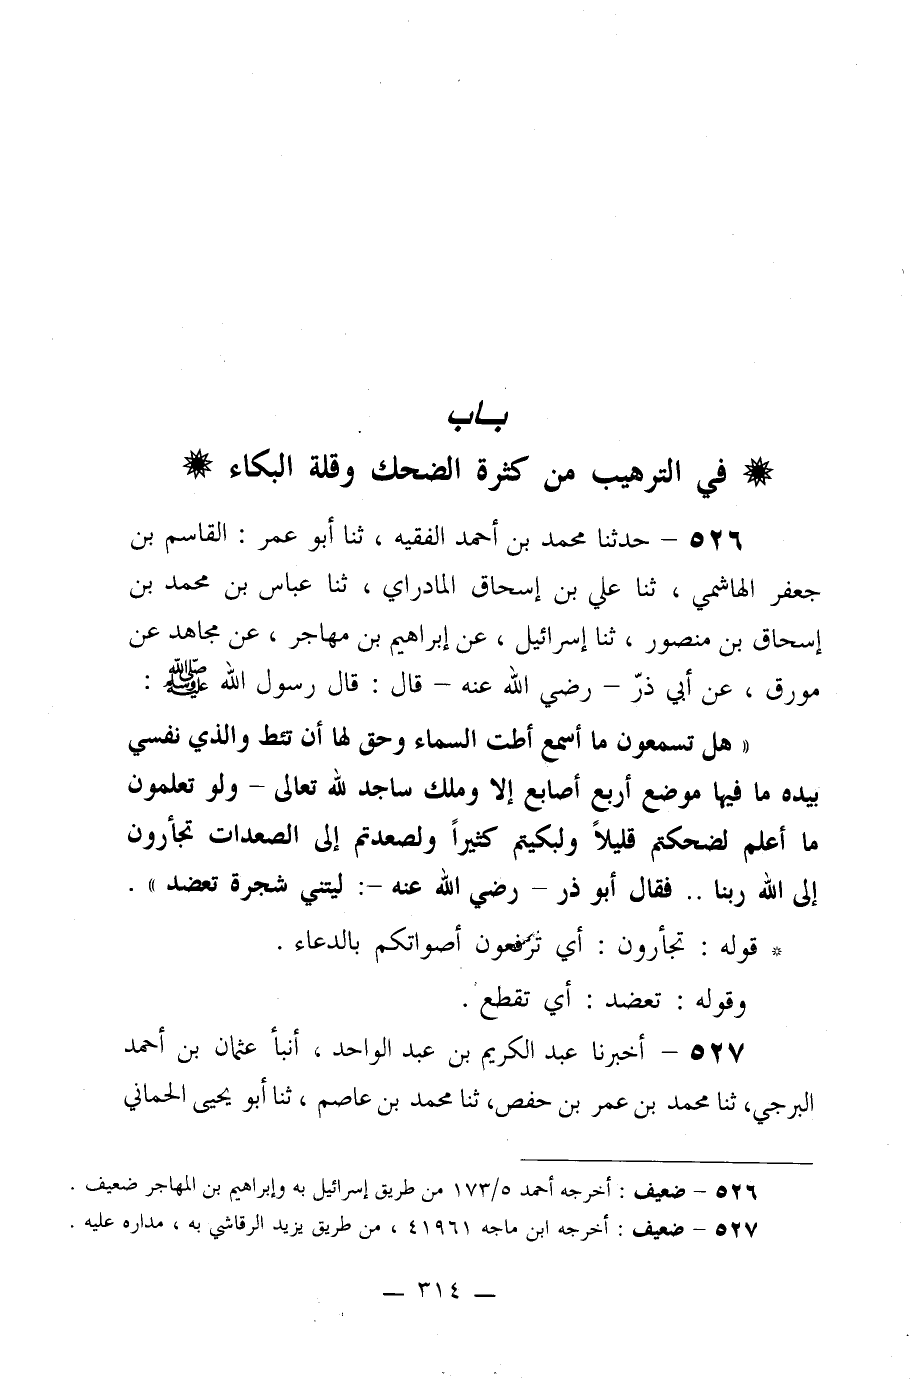 بـاب
في الترهيب من كثرة الضحك وقلة البكاء
٥٢٦ – حدثنا محمد بن أحمد الفقيه ، ثنا أبو عمر : القاسم بن
جعفر الهاشمي ، ثنا علي بن إسحاق المادراي ، ثنا عباس بن محمد بن
إسحاق بن منصور ، ثنا إسرائيل ، عن إبراهيم بن مهاجر ، عن مجاهد عن
مورق ، عن أبي ذرّ – رضي الله عنه – قال : قال رسول الله ﷺ :
« هل تسمعون ما أسمع أطت السماء وحق لها أن تئط والذي نفسي
بيده ما فيها موضع أربع أصابع إلا وملك ساجد لله تعالى – ولو تعلمون
ما أعلم لضحكتم قليلاً ولبكيتم كثيراً ولصعدتم إلى الصعدات تجأرون
إلى الله ربنا .. فقال أبو ذر – رضي الله عنه –: ليتني شجرة تعضد » .
* قوله : تجأرون : أي ترفعون أصواتكم بالدعاء .
وقوله : تعضد : أي تقطع .
٥٢٧ – أخبرنا عبد الكريم بن عبد الواحد ، أنبأ عثمان بن أحمد
البرجي، ثنا محمد بن عمر بن حفص، ثنا محمد بن عاصم ، ثنا أبو يحيى الحماني
٥٢٦ – ضعيف : أخرجه أحمد ١٧٣/٥ من طريق إسرائيل به وإبراهيم بن المهاجر ضعيف .
٥٢٧ – ضعيف : أخرجه ابن ماجه ٤١٩٦١ ، من طريق يزيد الرقاشي به ، مداره عليه .
– ٣١٤ –